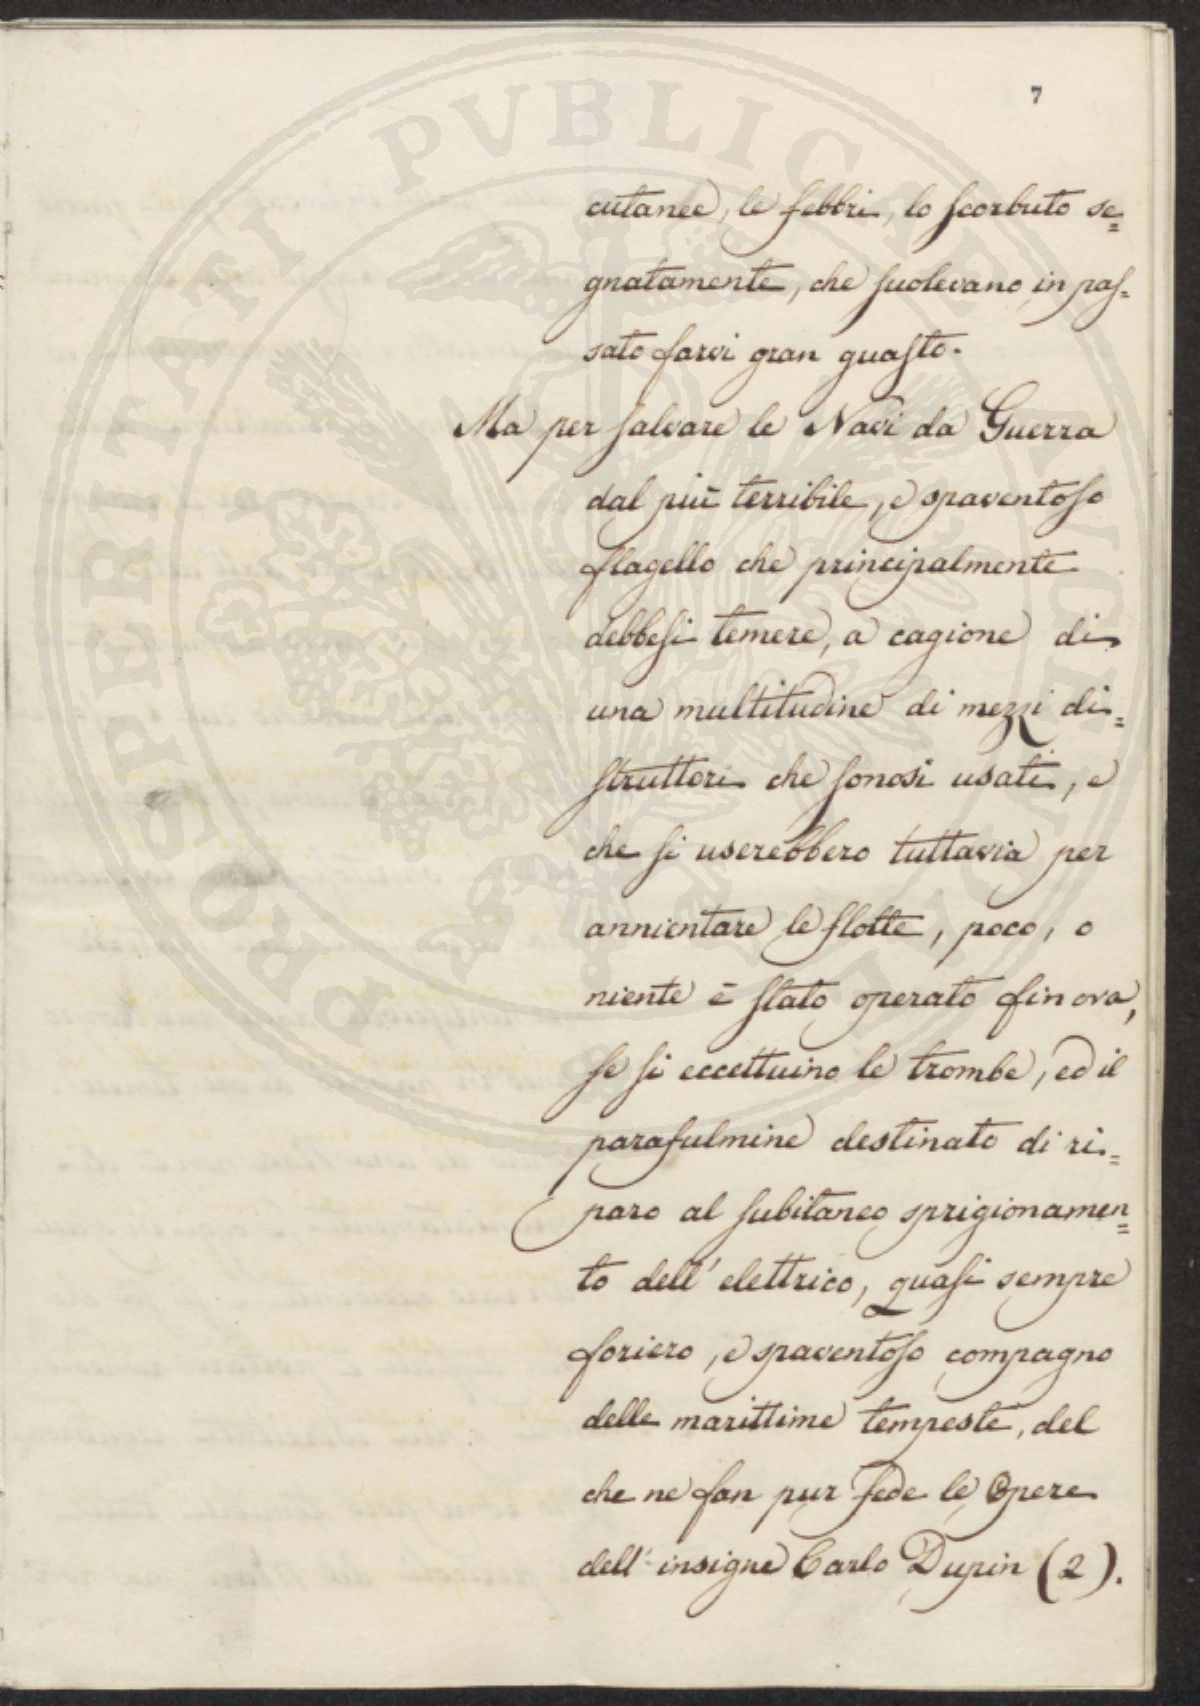 7
cutanee, le febbri, lo scorbuto se=
gnatamente, che suolevano in pas=
sato farvi gran guasto.
Ma per salvare le Navi da Guerra
dal più terribile, e spaventoso
flagello che principalmente
debbesi temere, a cagione di
una multitudine di mezzi di=
struttori che sonosi usati, e
che si userebbero tuttavia per
annientare le flotte, poco, o
niente è stato operato fin ora,
se si eccettuino le trombe, ed il
parafulmine destinato di ri=
paro al subitaneo sprigionamen=
to dell'elettrico, quasi sempre
foriero, e spaventoso compagno
delle marittime tempeste, del
che ne fan pur fede le Opere
dell'insigne Carlo Dupin (2).
PROSPERITATI PVBLICAE AVGENDAE